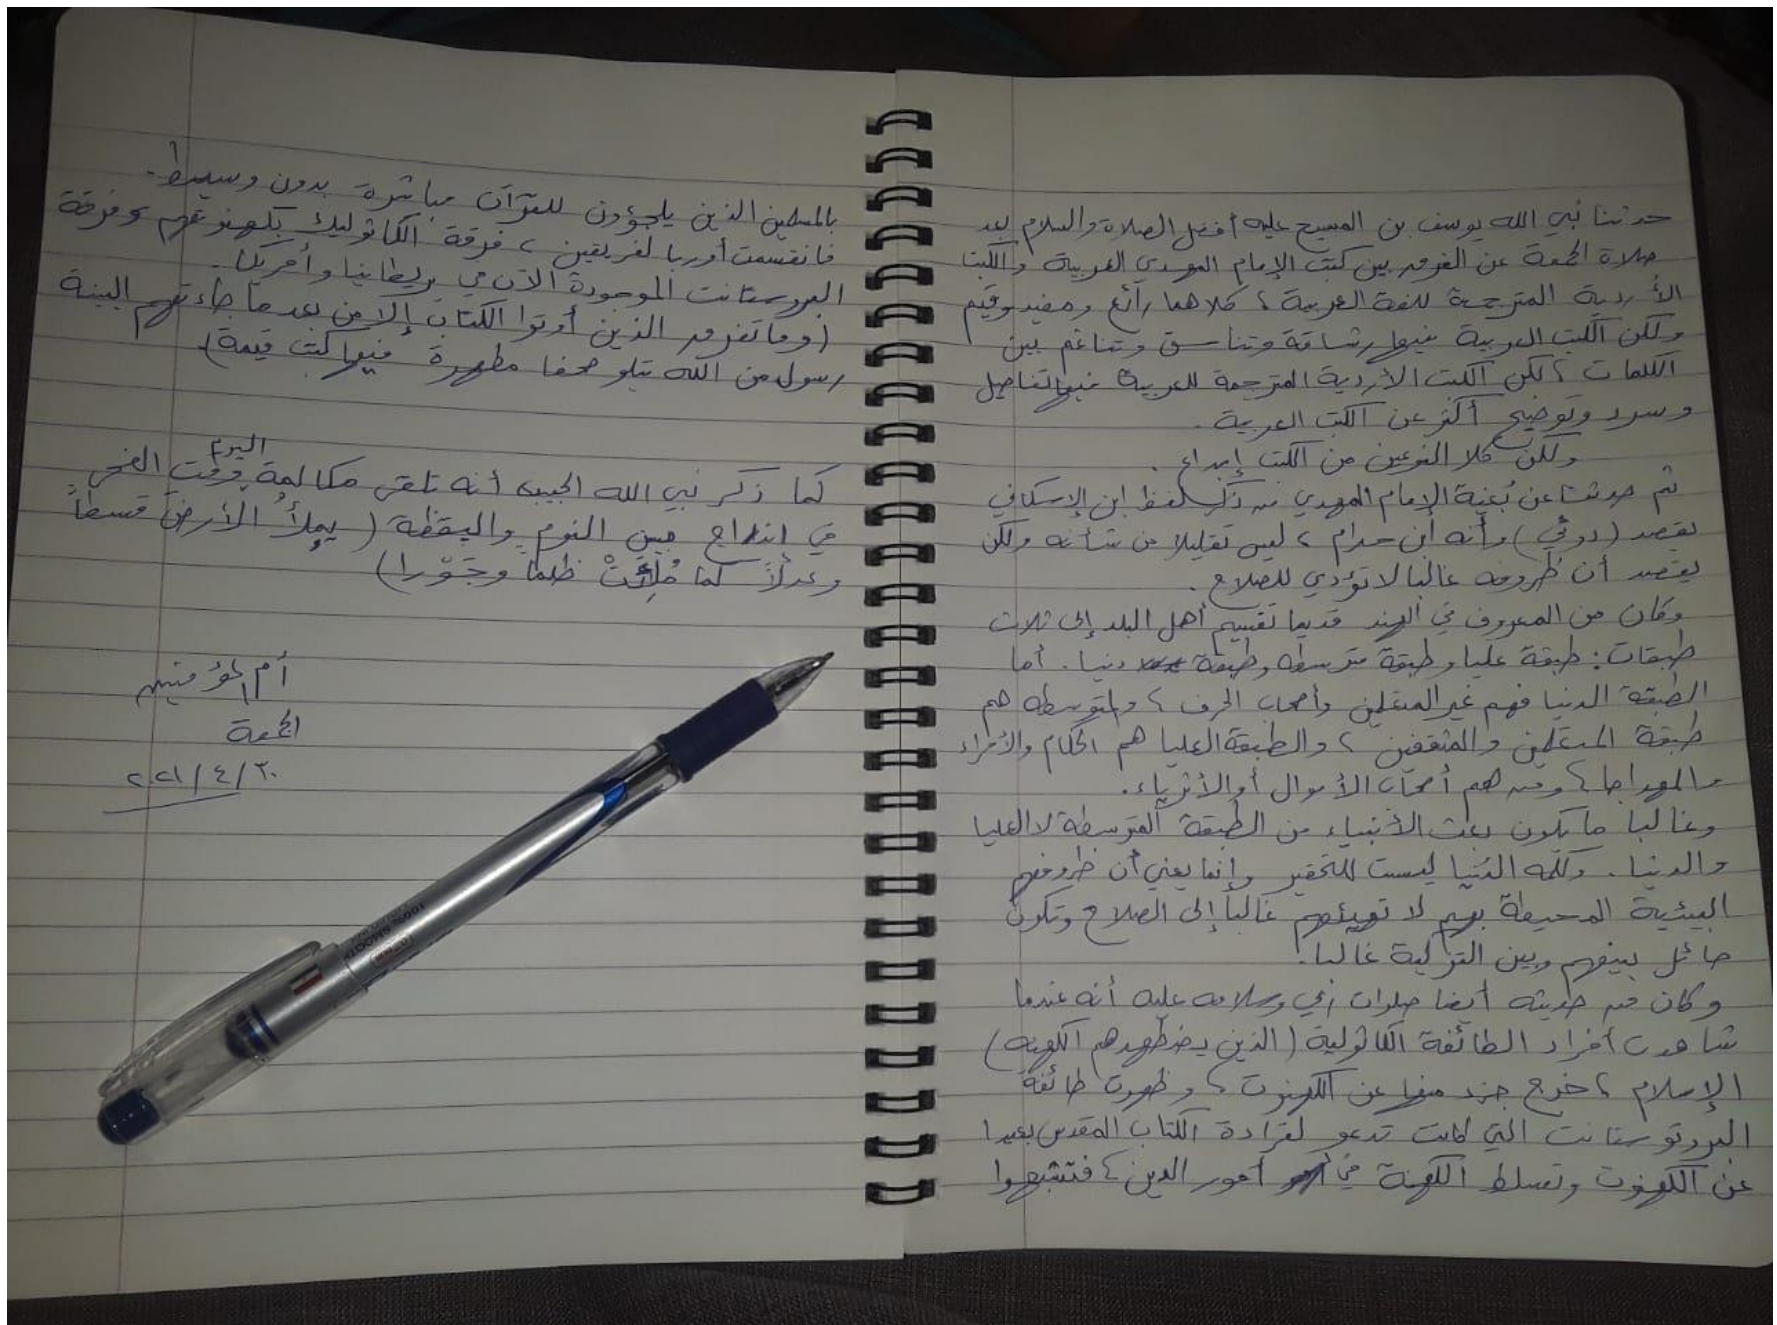 حدثنا نبي الله يوسف بن المسيح عليه أفضل الصلاة والسلام بعد
صلاة الجمعة عن الفرق بين كتب الإمام المهدي العربية والكتب
الأردية المترجمة للغة العربية ، كلاهما رائع ومفيد وقيم
ولكن الكتب العربية فيها رشاقة وتناسق وتناغم بين
الكلمات ، لكن الكتب الأردية المترجمة للعربية فيها تفاصيل
وسرد وتوضيح أكثر عن الكتب العربية .
ولكن كلا النوعين من الكتب إبداع .
ثم حدثنا عن بُغية الإمام المهدي من ذكر لفظ ابن الإسكافي
يقصد (دوئي) وأنه ابن حرام ، ليس تقليلا من شأنه ولكن
يقصد أن ظروفه غالبا لا تؤدي للصلاح .
وكان من المعروف في الهند قديما تقسيم أهل البلد إلى ثلاث
طبقات : طبقة عليا وطبقة متوسطه وطبقة دنيا . أما
الطبقة الدنيا فهم غير المتعلمين وأصحاب الحرف ، والمتوسطه هم
طبقة المتعلمين والمثقفين ، والطبقة العليا هم الحكام والأمراء
والمهراجا ، ومن هم أصحاب الأموال أو الأثرياء .
وغالبا ما يكون بعث الأنبياء من الطبقة المتوسطة لا العليا
والدنيا . وكلمه الدُنيا ليست للتحقير وإنما يعني أن ظروفهم
البيئية المحيطة بهم لا تهيئهم غالباً إلى الصلاح وتكون
حائل بينهم وبين التزكية غالبا .
وكان من حديثه أيضا صلوات ربي وسلامه عليه أنه عندما
شاهدت أفراد الطائفة الكاثولية (الذين يضطهدهم الكهنه)
الإسلام ، خرج جزء منها عن الكهنوت ، وظهرت طائفة
البروتوستانت التي كانت تدعو لقراءة الكتاب المقدس بعيدا
عن الكهنوت وتسلط الكهنة في أمور الدين ، فتشبهوا
بالمسلمين الذين يلجؤون للقرآن مباشرة بدون وسيط .
فانقسمت أوربا لفريقين ، فرقة الكاثوليك بكهنوتهم وفرقة
البروستانت الموجودة الآن في بريطانيا وأمريكا .
(وما تفرق الذين أوتوا الكتاب إلا من بعد ما جاءتهم البينة
رسول من الله يتلو صحفا مطهرة فيها كتب قيمة)
كما ذكر نبي الله الحبيب أنه تلقى مكالمة اليوم وقت الفجر
في اندماج بين النوم واليقظة (يملأُ الأرضَ قسطاً
وعدلاً كما مُلِئَتْ ظلماً وجَوْرا)
أم المؤمنين
الجمعة
٢٠٢١/٤/٣٠